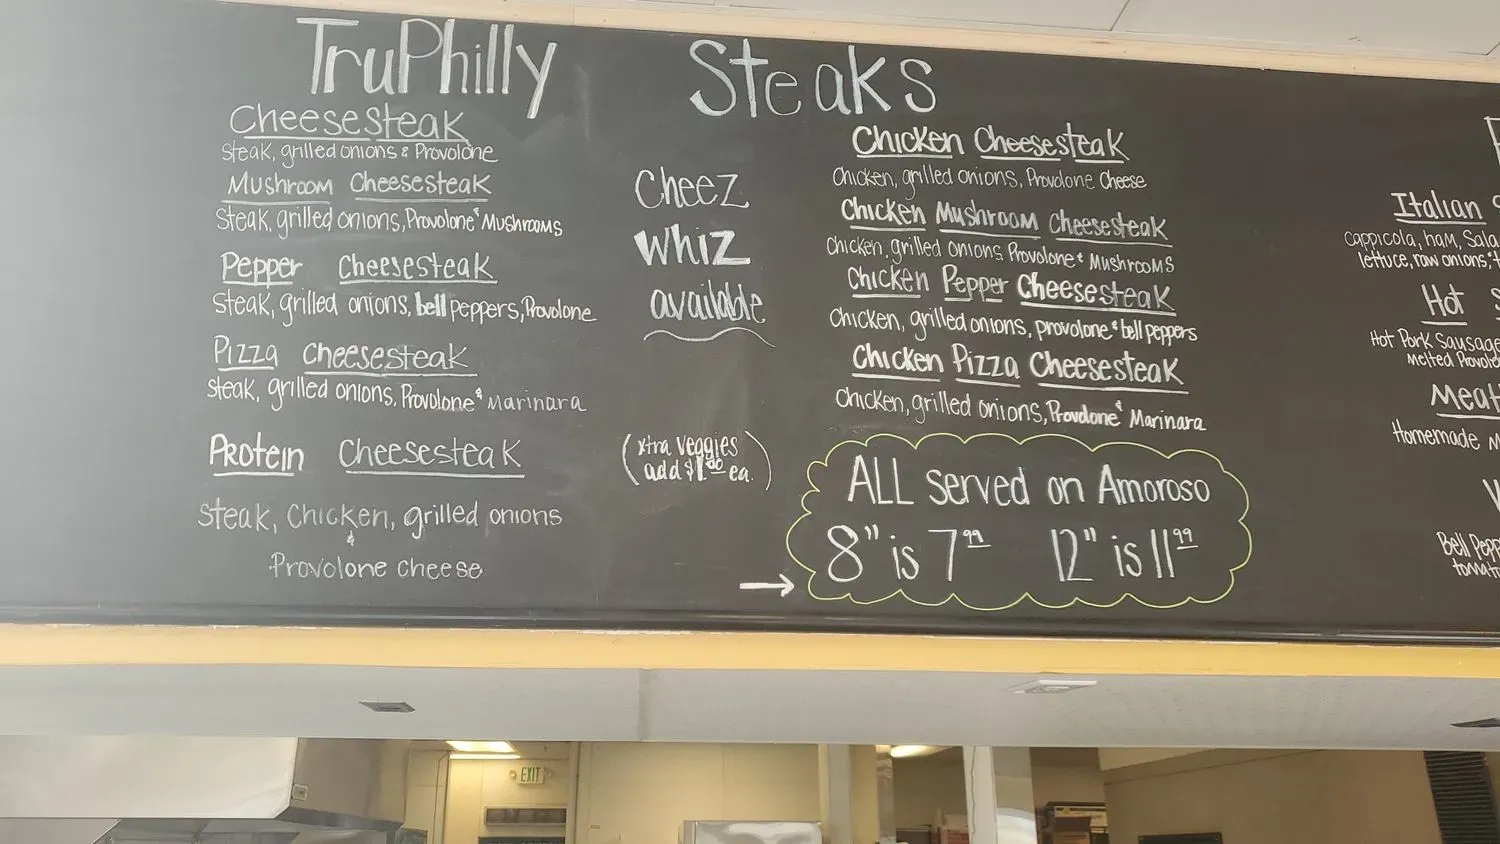 TruPhilly Steaks
Cheesesteak
Steak, grilled onions & Provolone
Mushroom Cheesesteak
Steak, grilled onions, Provolone & Mushrooms
Pepper Cheesesteak
Steak, grilled onions, bell peppers, Provolone
Pizza Cheesesteak
Steak, grilled onions, Provolone & Marinara
Protein Cheesesteak
Steak, Chicken, grilled onions
&
Provolone cheese
Cheez
Whiz
available
(xtra veggies
add $1.00 ea.)
Chicken Cheesesteak
Chicken, grilled onions, Provolone Cheese
Chicken Mushroom Cheesesteak
Chicken, grilled onions, Provolone & Mushrooms
Chicken Pepper Cheesesteak
Chicken, grilled onions, provolone & bell peppers
Chicken Pizza Cheesesteak
Chicken, grilled onions, Provolone & Marinara
ALL served on Amoroso
8" is 7.99 12" is 11.99
Italian
cappicola, ham,
lettuce, raw onions,
Hot
Hot Pork
melted
Homemade
Bell
EXIT